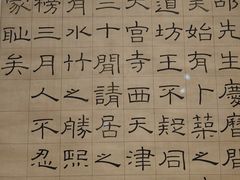 邵先生慶曆間
始有卜築之
道坊王不疑同
天宮寺西天津
三十間請居之
有水竹之勝熙
榜三月人不忍
家恥矣